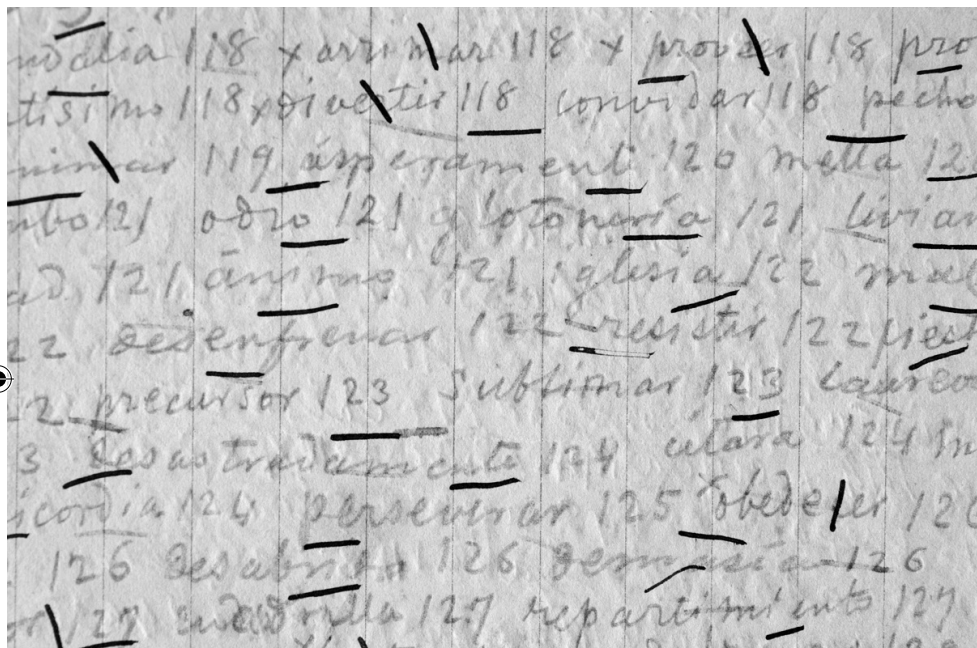 118 x arrimar 118 x proveer 118 pro
tisimo 118 x divertir 118 convidar 118 pecho
nimar 119 ásperamente 120 mella 12
mbo 121 odro 121 glotonaría 121 livian
ad 121 ánimo 121 iglesia 122 mal
22 desenfrenar 122 resistir 122
precursor 123 Sublimar 123 Laureo
3 desastradamente 124 cítara 124 m
icordia 124 perseverar 125 obedecer 126
126 desabrido 126 demasía 126
or 127 127 repartimiento 127